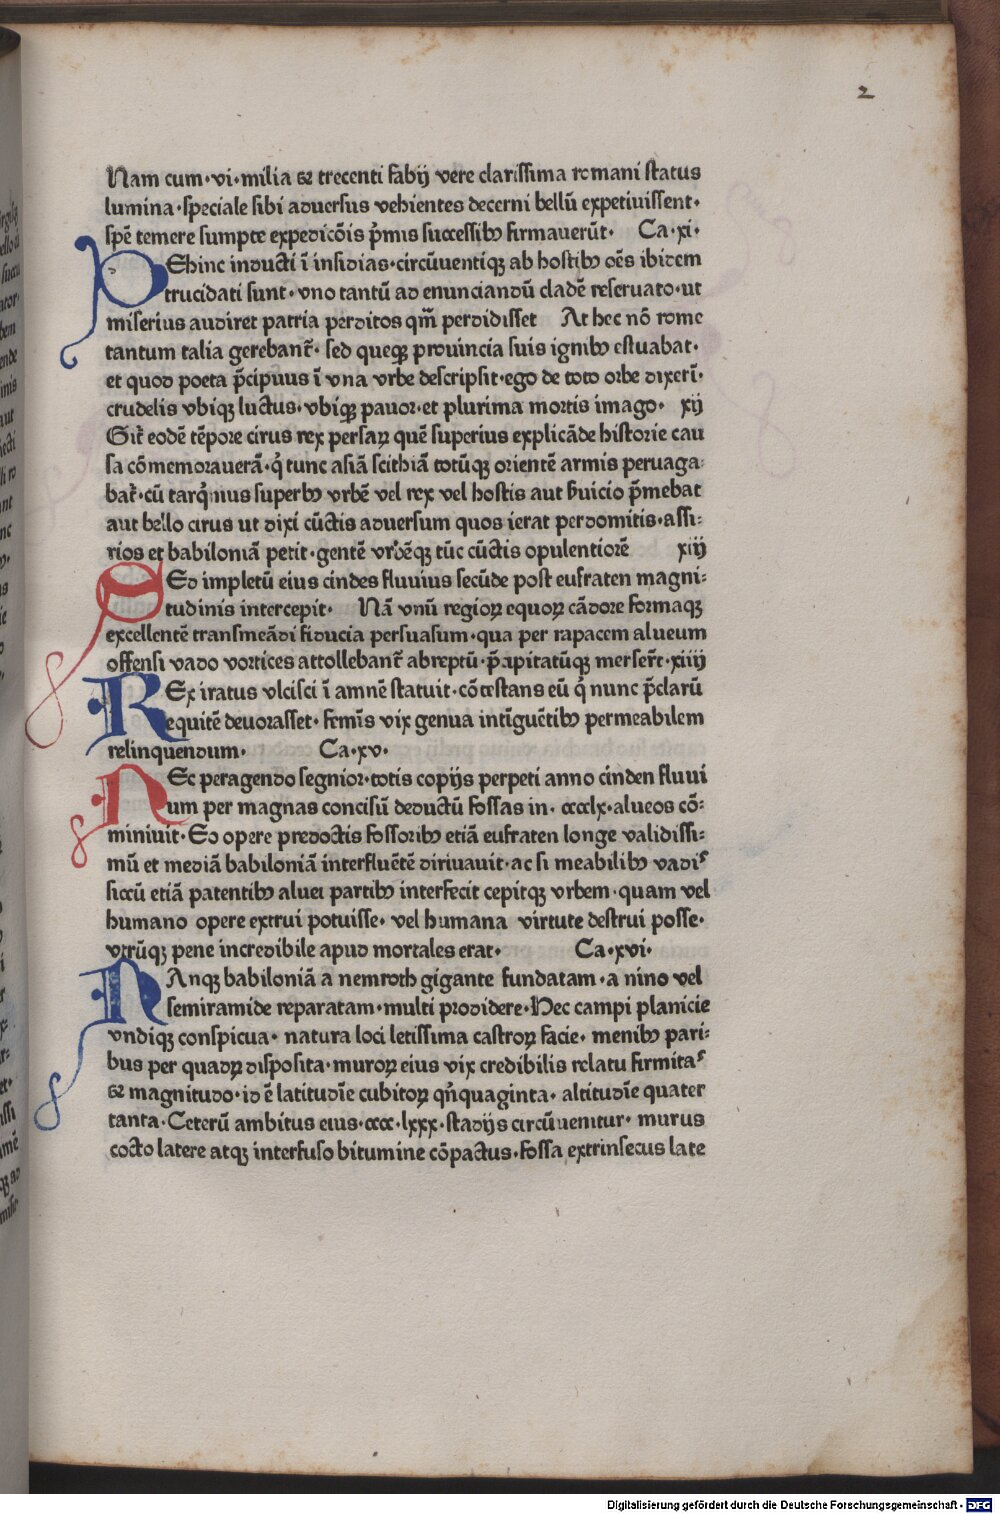 2
Nam cum·vi·milia ⁊ trecenti fabij vere clarissima romani status
lumina·speciale sibi aduersus vehientes decerni bellū expetiuissent·
spē temere sumpte expedicōis p̄mis successibꝰ firmauerūt· Ca·xi·
DEhinc inducti ī insidias·circūuentiqꝫ ab hostibꝰ oēs ibidem
trucidati sunt·vno tantū ad enunciandū cladē reseruato·ut
miserius audiret patria perditos qm̄ perdidisset At hec nō rome
tantum talia gerebant̄·sed queqꝫ prouincia suis ignibꝰ estuabat·
et quod poeta p̄cipuus ī vna vrbe descripsit·ego de toto orbe dixerī·
crudelis vbiqꝫ luctus·vbiqꝫ pauor·et plurima mortis imago· xij
Git̄ eodē tēpore cirus rex persaꝝ quē superius explicāde historie cau
sa cōmemoraueram̄·q̇ tunc asiā scithiā totūqꝫ orientē armis peruaga:
bat̄·cū tarq̇nius superbꝰ vrbē vel rex vel hostis aut ẜuicio p̄mebat
aut bello cirus ut dixi cūctis aduersum quos ierat perdomitis·assi:
rios et babiloniā petit·gentē vrbēqꝫ tūc cūctis opulentiorē xiij
SEd impletū eius cindes fluuius secūde post eufraten magni:
tudinis intercepit· Nā vnū regioꝝ equoꝝ cādore formaqꝫ
excellentē transmeādi fiducia persuasum·qua per rapacem alueum
offensi vado vortices attollebant̄ abreptū·p̄cipitatūqꝫ merser̄t·xiiij
REx iratus vlcisci ī amnē statuit·cōtestans eū q̇ nunc p̄clarū
equitē deuorasset·femīs vix genua intīguētibꝰ permeabilem
relinquendum· Ca·xv·
NEc peragendo segnior·totis copijs perpeti anno cinden fluui
um per magnas concisū deductū fossas in·cccclx·alueos cō:
miniuit·Eo opere predoctis fossoribꝰ etiā eufraten longe validissi:
mū et mediā babiloniā interfluētē diriuauit·ac si meabilibꝰ vadiˢ
siccū etiā patentibꝰ aluei partibꝰ interfecit cepitqꝫ vrbem·quam vel
humano opere extrui potuisse·vel humana virtute destrui posse·
vtrūqꝫ pene incredibile apud mortales erat· Ca·xvi·
NAnqꝫ babiloniā a nemroth gigante fundatam·a nino vel
semiramide reparatam·multi prodidere·Hec campi planicie
vndiqꝫ conspicua·natura loci letissima castroꝝ facie·menibꝰ pari:
bus per quadꝝ disposita·muroꝝ eius vix credibilis relatu firmitaˢ
⁊ magnitudo·id ē latitudīe cubitoꝝ qn̄quaginta·altitudīe quater
tanta·Ceterū ambitus eius·cccc·lxxx·stadijs circūuenitur·murus
cocto latere atqꝫ interfuso bitumine cōpactus·fossa extrinsecus late
Digitalisierung gefördert durch die Deutsche Forschungsgemeinschaft - DFG